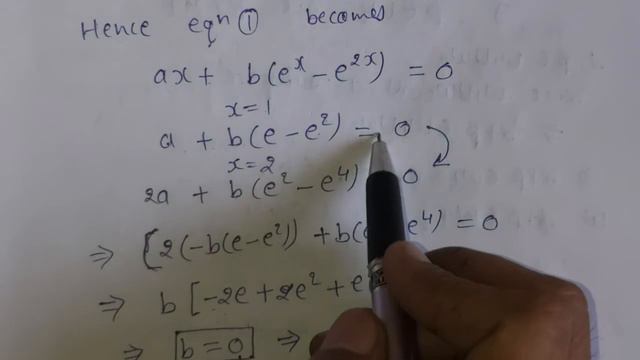 Hence eqn ① becomes
ax + b(e^x - e^{2x}) = 0
x=1
a + b(e - e^2) = 0
x=2
2a + b(e^2 - e^4) 0
⇒ [2(-b(e-e^2)) + b( e^4) = 0
⇒ b[-2e + 2e^2 + e
⇒ b = 0 ⇒